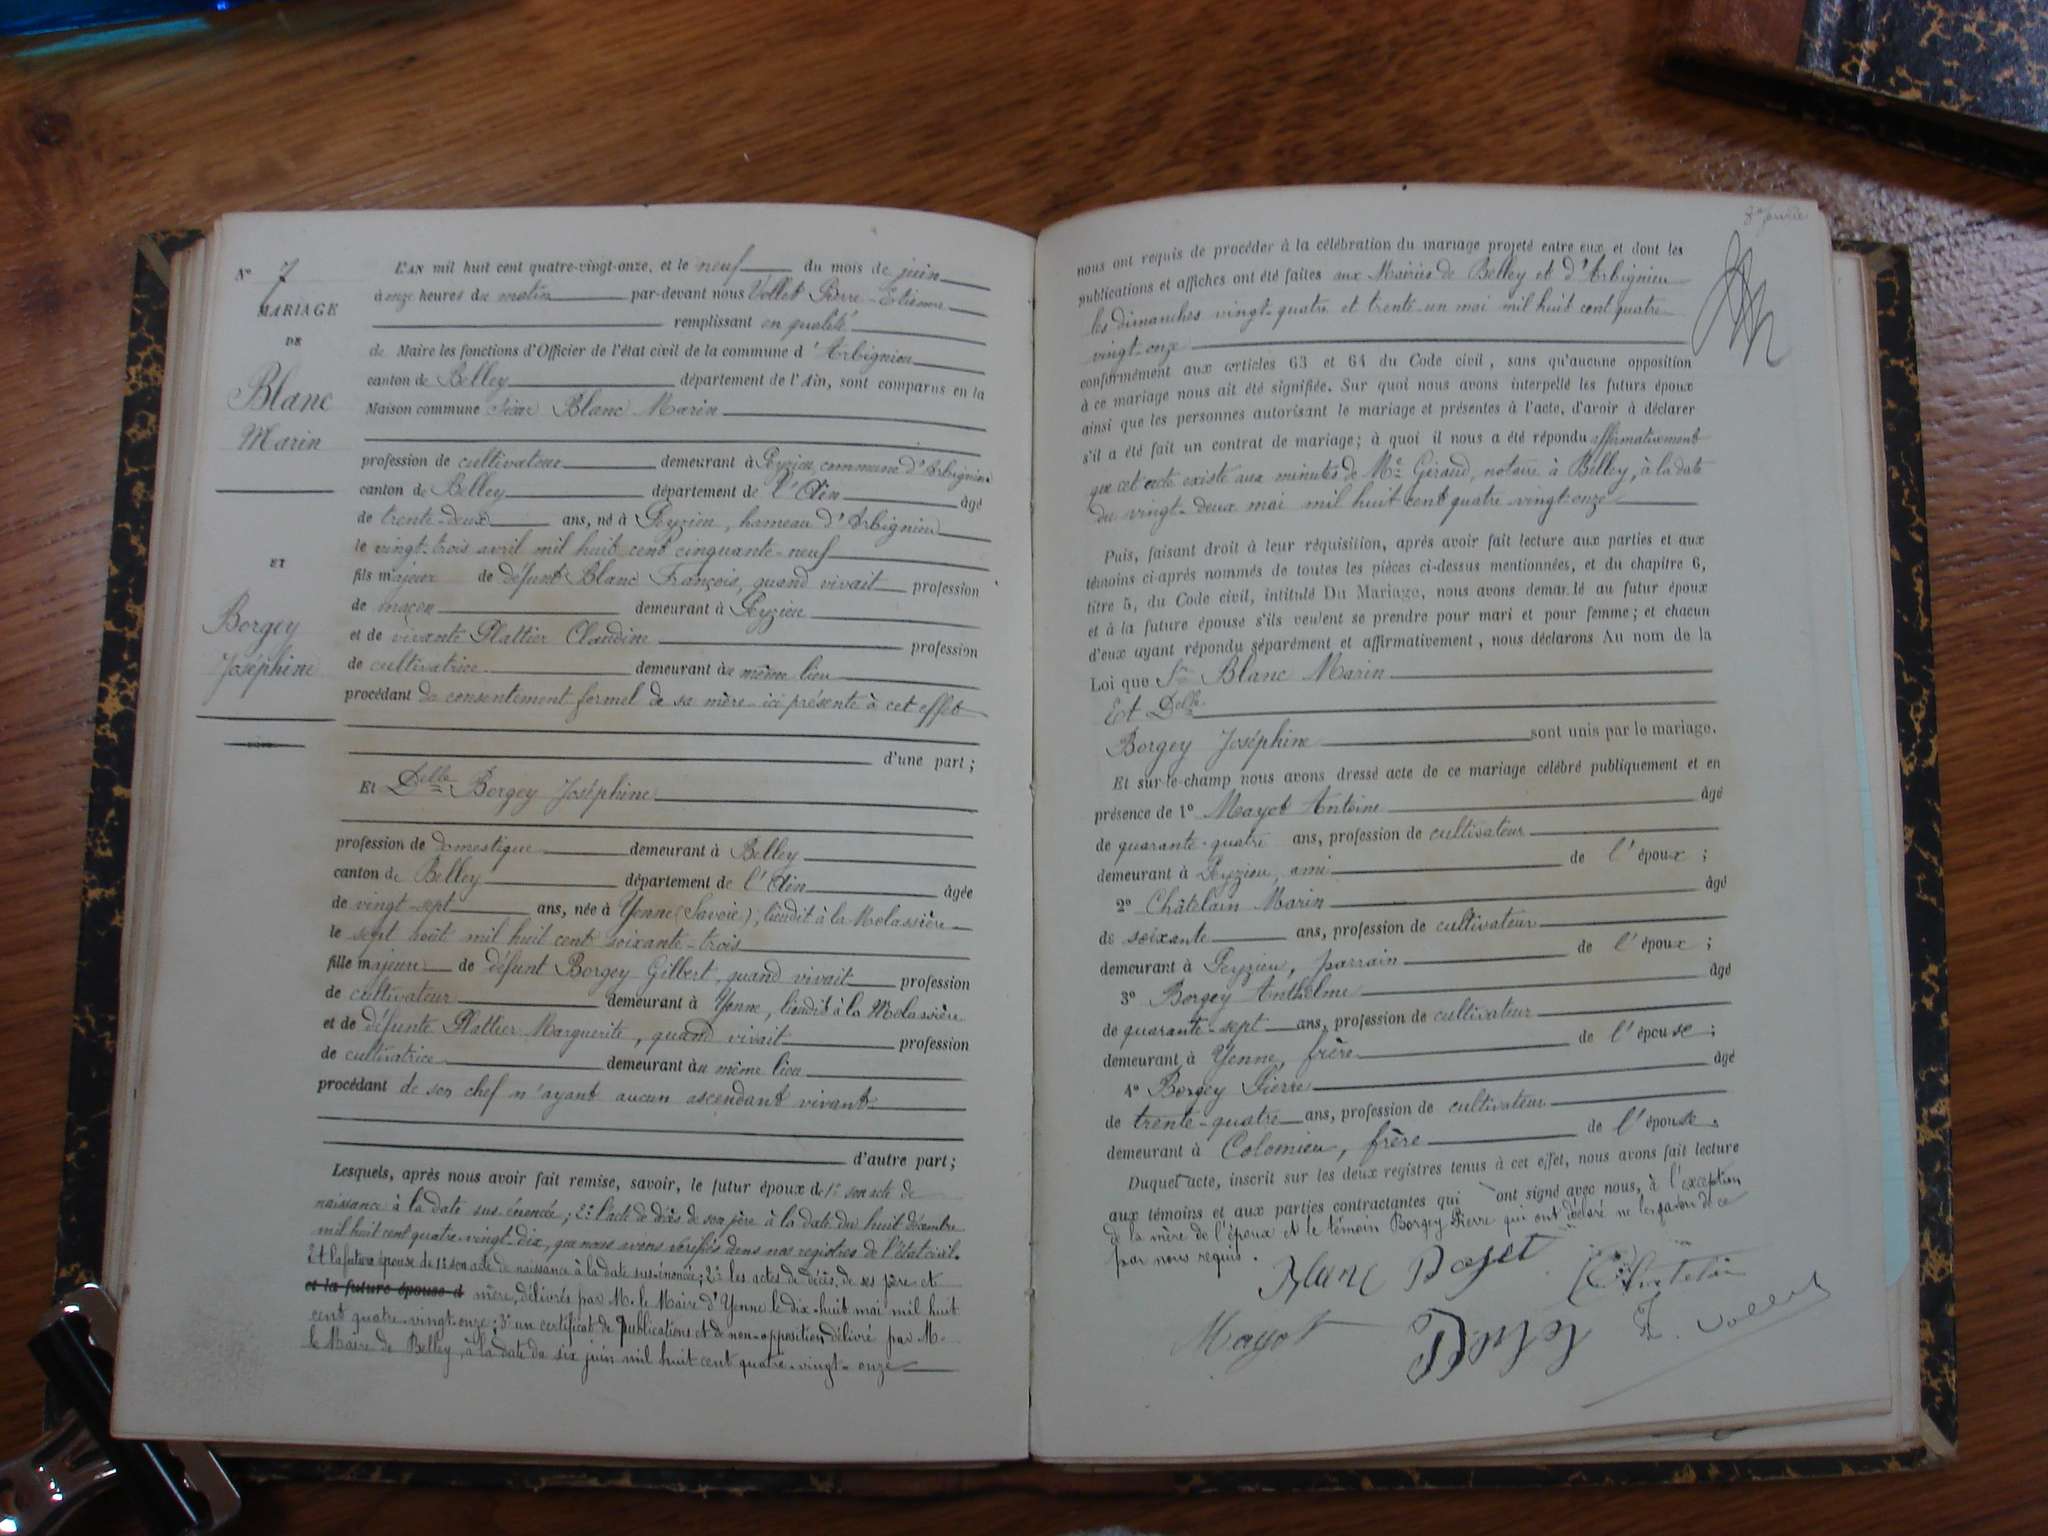 N° 7
MARIAGE
DE
Blanc
Marin
ET
Borgey
Joséphine
L'AN mil huit cent quatre-vingt-onze, et le neuf du mois de juin
à onze heures du matin par-devant nous Vollet Pierre-Etienne
remplissant en qualité
de Maire les fonctions d'Officier de l'état civil de la commune d'Arbignieu
canton de Belley département de l'Ain, sont comparus en la
Maison commune sieur Blanc Marin
profession de cultivateur demeurant à Peyzieu, commune d'Arbignieu
canton de Belley département de l'Ain âgé
de trente-deux ans, né à Peyzieu, hameau d'Arbignieu
le vingt-trois avril mil huit cent cinquante-neuf
fils majeur de défunt Blanc François, quand vivait profession
de maçon demeurant à Peyzieu
et de vivante Plattier Claudine profession
de cultivatrice demeurant au même lieu
procédant du consentement formel de sa mère ici présente à cet effet
d'une part ;
Et Delle Borgey Joséphine
profession de domestique demeurant à Belley
canton de Belley département de l'Ain âgée
de vingt-sept ans, née à Yenne (Savoie), lieudit à la Molassière
le sept août mil huit cent soixante-trois
fille majeure de défunt Borgey Gilbert, quand vivait profession
de cultivateur demeurant à Yenne, lieudit à la Molassière
et de défunte Plattier Marguerite, quand vivait profession
de cultivatrice demeurant au même lieu
procédant de son chef n'ayant aucun ascendant vivant
d'autre part ;
Lesquels, après nous avoir fait remise, savoir, le futur époux de 1° son acte de
naissance à la date sus-énoncée ; 2° l'acte de décès de son père à la date du huit décembre
mil huit cent quatre-vingt-dix, que nous avons vérifiés dans nos registres de l'état civil.
Et la future épouse de 1° son acte de naissance à la date sus-énoncée ; 2° les actes de décès de ses père et
et la future épouse d mère, délivrés par M. le Maire d'Yenne le dix-huit mai mil huit
cent quatre-vingt-onze ; 3° un certificat de publications et de non-opposition délivré par M.
le Maire de Belley, à la date du six juin mil huit cent quatre-vingt-onze
nous ont requis de procéder à la célébration du mariage projeté entre eux et dont les
publications et affiches ont été faites aux Mairies de Belley et d'Arbignieu
les dimanches vingt-quatre et trente-un mai mil huit cent quatre
vingt-onze
conformément aux articles 63 et 64 du Code civil, sans qu'aucune opposition
à ce mariage nous ait été signifiée. Sur quoi nous avons interpellé les futurs époux
ainsi que les personnes autorisant le mariage et présentes à l'acte, d'avoir à déclarer
s'il a été fait un contrat de mariage ; à quoi il nous a été répondu affirmativement
que cet acte existe aux minutes de Me Giraud, notaire à Belley, à la date
du vingt-deux mai mil huit cent quatre-vingt-onze
Puis, faisant droit à leur réquisition, après avoir fait lecture aux parties et aux
témoins ci-après nommés de toutes les pièces ci-dessus mentionnées, et du chapitre 6,
titre 5, du Code civil, intitulé Du Mariage, nous avons demandé au futur époux
et à la future épouse s'ils veulent se prendre pour mari et pour femme ; et chacun
d'eux ayant répondu séparément et affirmativement, nous déclarons Au nom de la
Loi que Sr Blanc Marin
Et Delle
Borgey Joséphine sont unis par le mariage.
Et sur-le-champ nous avons dressé acte de ce mariage célébré publiquement et en
présence de 1° Mayot Antoine âgé
de quarante-quatre ans, profession de cultivateur
demeurant à Peyzieu, ami de l'époux ;
2° Châtelain Marin âgé
de soixante ans, profession de cultivateur
demeurant à Peyzieu, parrain de l'époux ;
3° Borgey Anthelme âgé
de quarante-sept ans, profession de cultivateur
demeurant à Yenne, frère de l'épouse ;
4° Borgey Pierre âgé
de trente-quatre ans, profession de cultivateur
demeurant à Colomieu, frère de l'épouse.
Duquel acte, inscrit sur les deux registres tenus à cet effet, nous avons fait lecture
aux témoins et aux parties contractantes qui ont signé avec nous, à l'exception
de la mère de l'époux et le témoin Borgey Pierre qui ont déclaré ne le savoir de ce
par nous requis.
Blanc
Mayot